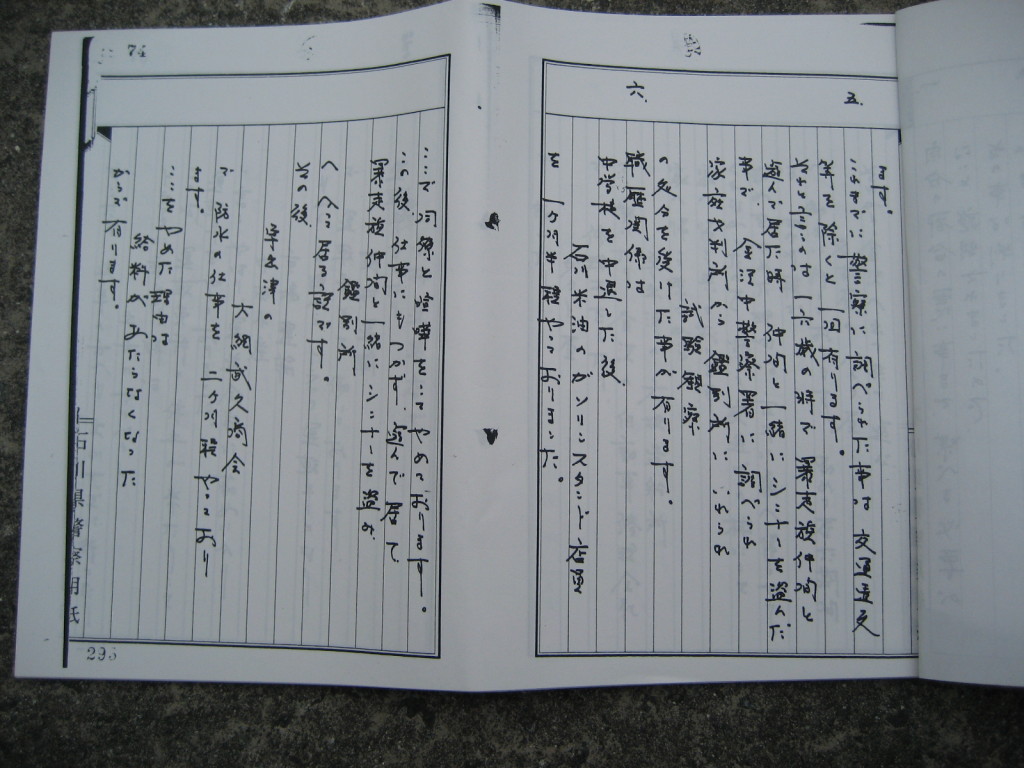 五、
ます。
これまでに警察に調べられた事は交通違反
等を除くと一回有ります。
それと言うのは一六歳の時で暴走族仲間と
遊んで居た時仲間と一緒にシンナーを盗んだ
事で、金沢中警察署に調べられ
家庭裁判所から鑑別所にいれられ
試験観察
の処分を受けた事が有ります。
六、
職歴関係は
中学校を中退した後
石川米油のガソリンスタンド店員
を一ヵ月半程やっておりました。
ここで同僚と喧嘩をしてやめております。
この後、仕事にもつかず、遊んで居て
暴走族仲間と一緒にシンナーを盗み、
鑑別所
へへえる訳です。
その後
宇之津の
大網武久商会
で防水の仕事を二ヵ月程やっており
ます。
ここをやめた理由は
給料があたらなくなった
からで有ります。
石川県警察用紙
74
293